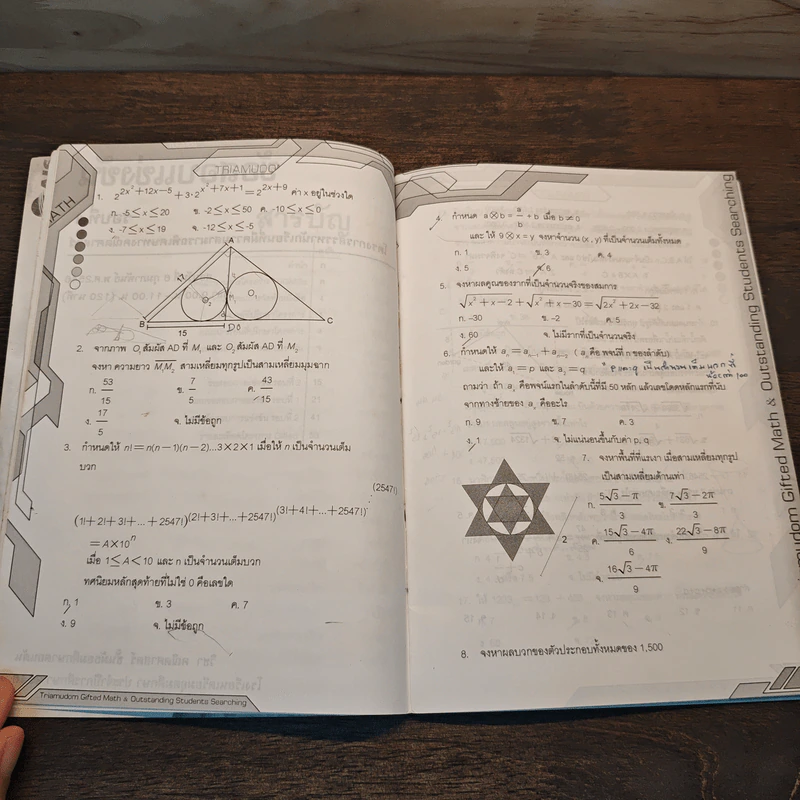 TRIAMUDOM
MATH
1. 2^(2x²+12x-5) + 3·2^(x²+7x+1) = 2^(2x+9) ค่า x อยู่ในช่วงใด
ก. -5 ≤ x ≤ 20 ข. -2 ≤ x ≤ 50 ค. -10 ≤ x ≤ 0
ง. -7 ≤ x ≤ 19 จ. -12 ≤ x ≤ -5
A
O₂ M₁ O₁
B D C
15
2. จากภาพ O₁ สัมผัส AD ที่ M₁ และ O₂ สัมผัส AD ที่ M₂
จงหา ความยาว M₁M₂ สามเหลี่ยมทุกรูปเป็นสามเหลี่ยมมุมฉาก
ก. 53/15 ข. 7/5 ค. 43/15
ง. 17/5 จ. ไม่มีข้อถูก
3. กำหนดให้ n! = n(n-1)(n-2)...3×2×1 เมื่อให้ n เป็นจำนวนเต็ม
บวก
(1!+2!+3!+...+2547!)^(2!+3!+...+2547!)^(3!+4!+...+2547!)^⋰^(2547!)
= A×10ⁿ
เมื่อ 1 ≤ A < 10 และ n เป็นจำนวนเต็มบวก
ทศนิยมหลักสุดท้ายที่ไม่ใช่ 0 คือเลขใด
ก. 1 ข. 3 ค. 7
ง. 9 จ. ไม่มีข้อถูก
Triamudom Gifted Math & Outstanding Students Searching
4. กำหนด a⊗b = a/b + b เมื่อ b ≠ 0
และ ให้ 9⊗x = y จงหาจำนวน (x, y) ที่เป็นจำนวนเต็มทั้งหมด
ก. 1 ข. 3 ค. 4
ง. 5 จ. 6
5. จงหาผลคูณของรากที่เป็นจำนวนจริงของสมการ
√(x²+x-2) + √(x²+x-30) = √(2x²+2x-32)
ก. -30 ข. -2 ค. 5
ง. 60 จ. ไม่มีรากที่เป็นจำนวนจริง
6. กำหนดให้ aₙ = aₙ₋₁ + aₙ₋₂ (aₙ คือ พจน์ที่ n ของลำดับ)
และให้ a₁ = p และ a₂ = q
ถามว่า ถ้า aₓ คือพจน์แรกในลำดับนี้ที่มี 50 หลัก แล้วเลขโดดหลักแรกที่นับ
จากทางซ้ายของ aₓ คืออะไร
ก. 9 ข. 7 ค. 3
ง. 1 จ. ไม่แน่นอนขึ้นกับค่า p, q
7. จงหาพื้นที่ที่แรเงา เมื่อสามเหลี่ยมทุกรูป
เป็นสามเหลี่ยมด้านเท่า
2
ก. (5√3-π)/3 ข. (7√3-2π)/3
ค. (15√3-4π)/6 ง. (22√3-8π)/9
จ. (16√3-4π)/9
8. จงหาผลบวกของตัวประกอบทั้งหมดของ 1,500
Triamudom Gifted Math & Outstanding Students Searching